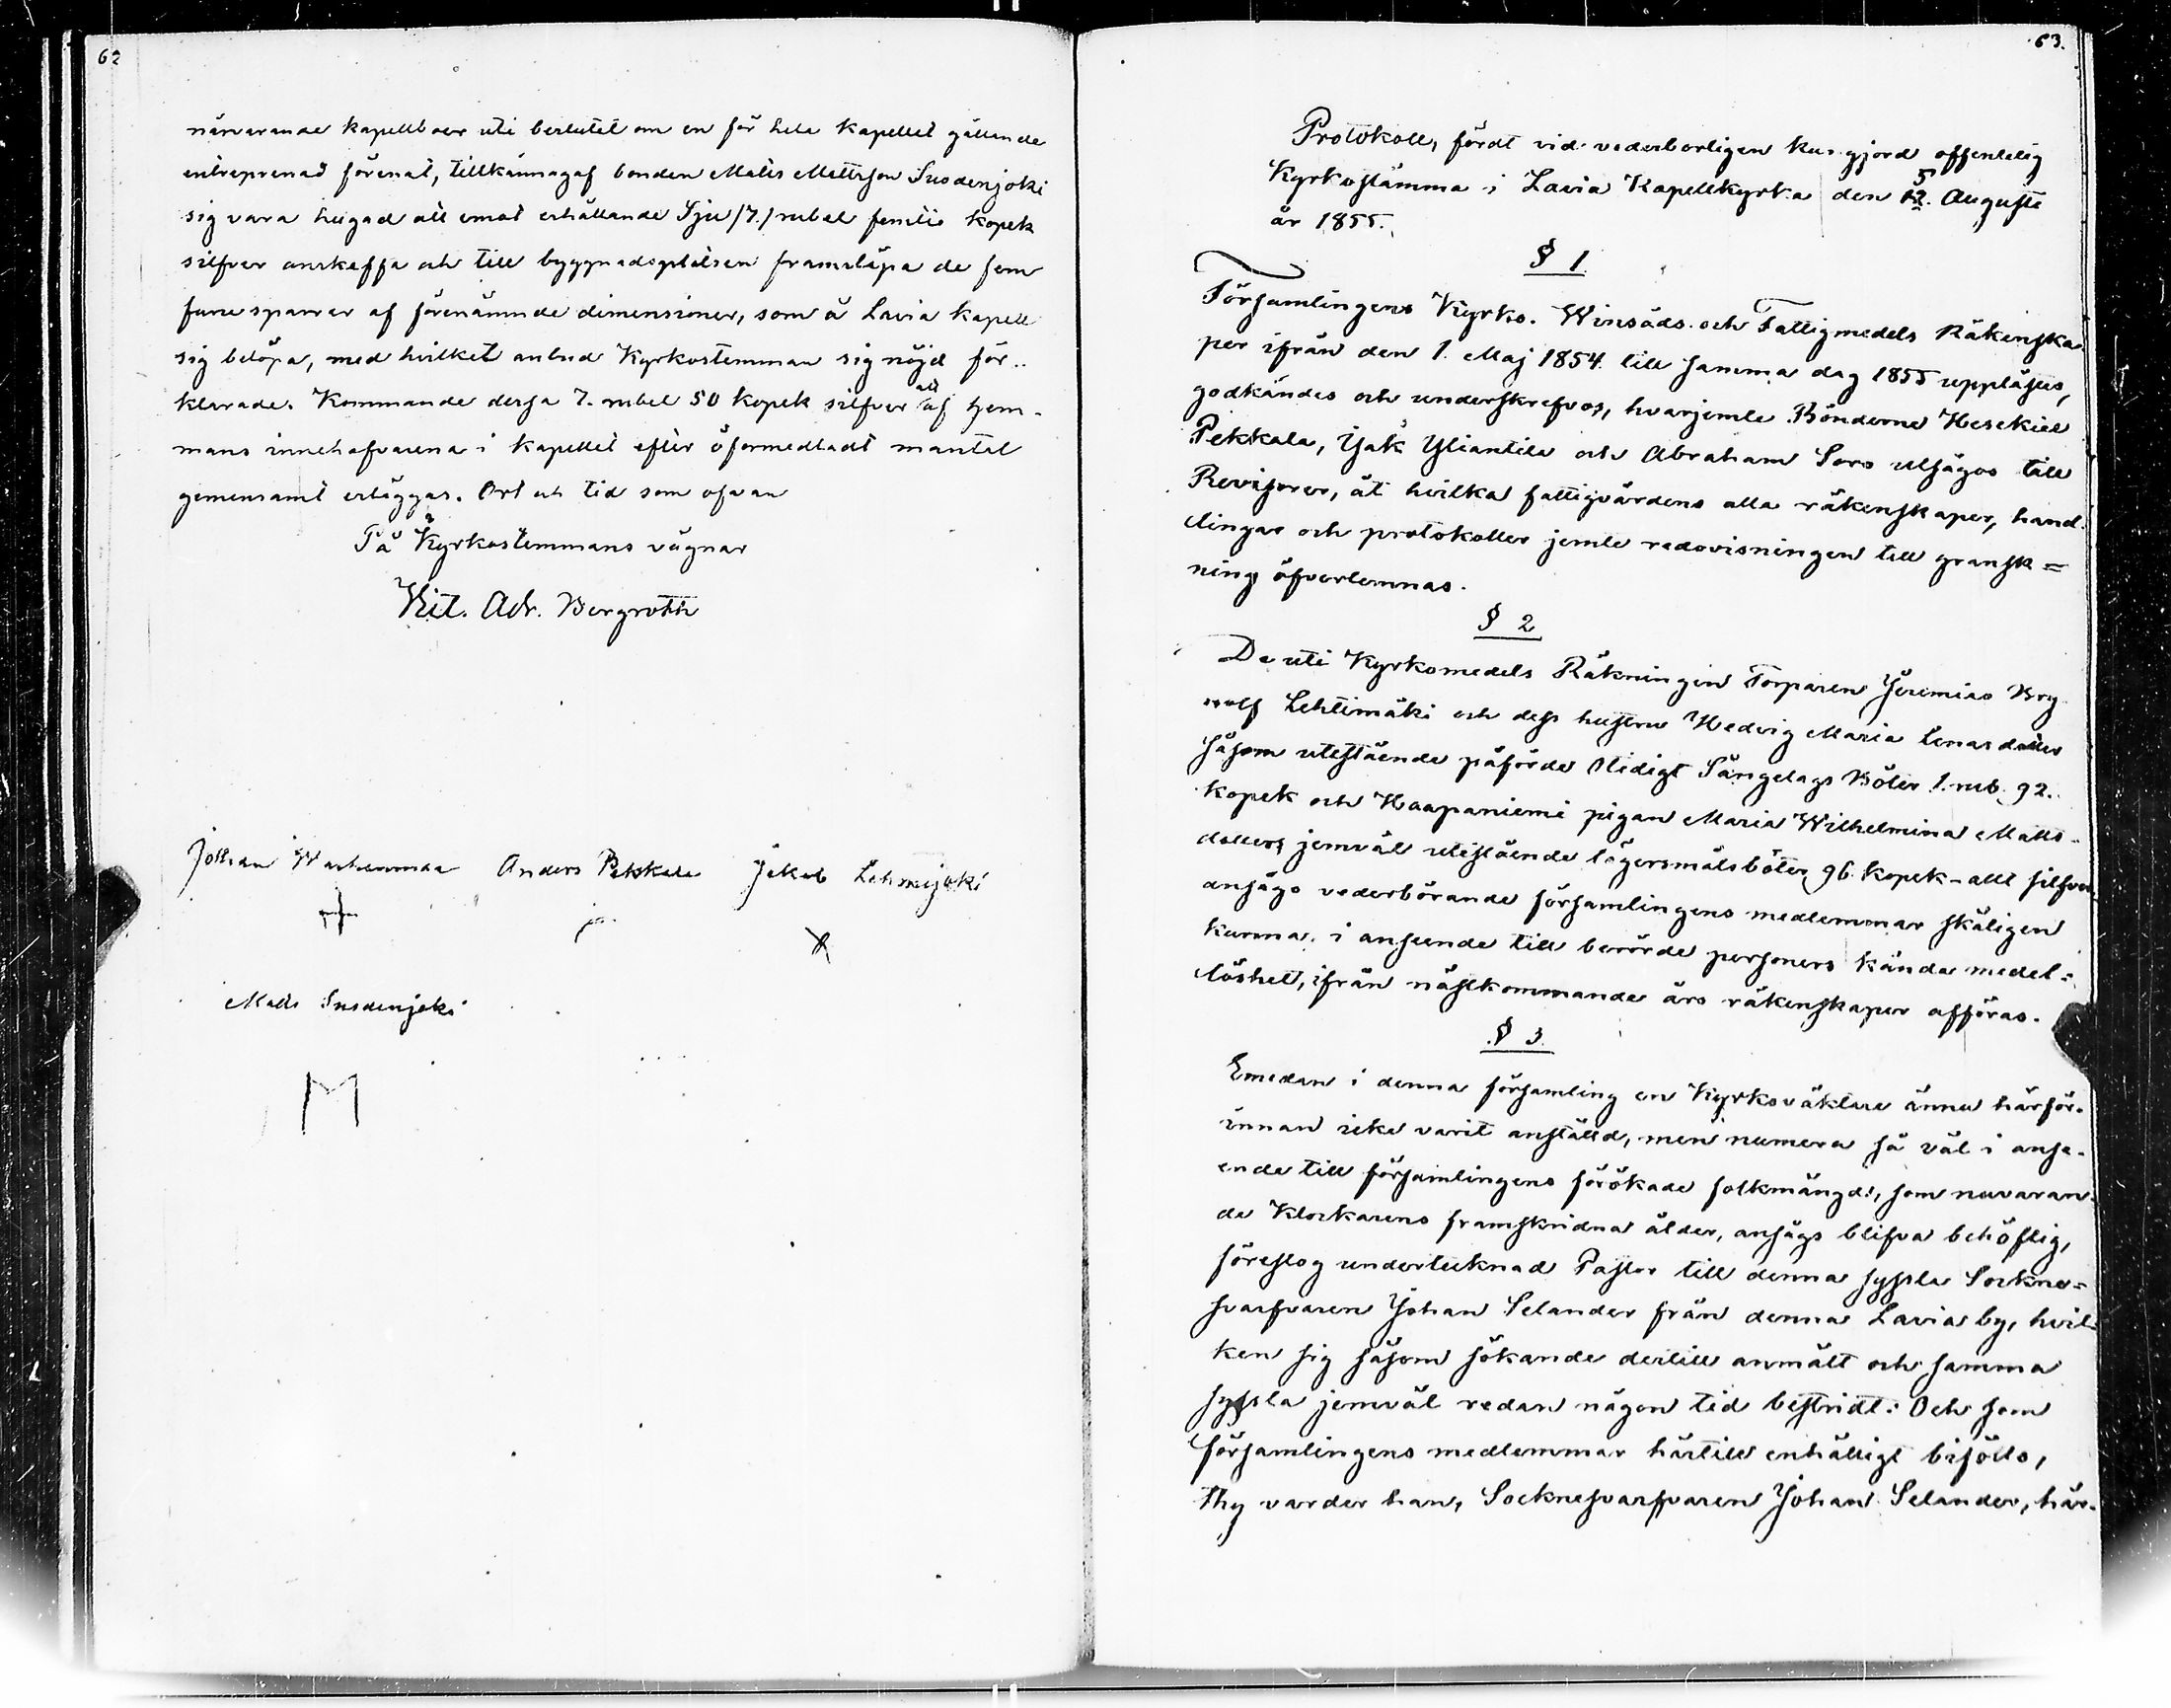 62
närvarande kapellboer uti beslutet om en för hela kapellet gällande
entreprenad förenat, tillkännagaf bonden Matts Mattsson Susdenjoki
sig vara hugad att emot erhållande Sju /7./ rubel femtio kopek
silfver anskaffa och till byggnadsplatsen framsläpa de fem
furu sparrar af förenämnde dimensioner, som å Lavia kapell
sig belöpa, med hvilket anbud Kyrkostemman sig nöjd för..
klarade. Kommande dessa 7. rubel 50 kopek silfver att af hem-
mans innehafvarena i kapellet efter oförmedladt mantal
gemensamt erläggas. Ort och tid som ofvan
På Kyrkostemmans vägnar
Kit. Adr. Bergroth
Johan Warhenmaa Anders Pekkala Jakob Lehmijoki
Matts Susdenjoki
M
63.
Protokoll, fördt vid vederborligen kungjord offentelig
Kyrkostämma i Lavia Kapellkyrka den 5. Augusti
år 1855.
§ 1.
Församlingens Kyrko- Winsäds- och Fattigmedels Räkenska-
per ifrån den 1. Maj 1854 till samma dag 1855 upplästes,
godkändes och underskrefvos, hvarjemte Bönderne Hesekiel
Pekkala, Isak Yliantila och Abraham Soro utsågos till
Revisorer, åt hvilka fattigvårdens alla räkenskaper, hand-
lingar och protokoller jemte redovisningen till gransk=
ning öfverlemnas.
§ 2
De uti Kyrkomedels Räkningen Torparen Jeremias Bry
nolf Lehtimäki och dess hustru Hedvig Maria Lenasdotter
såsom utestående påförde Otidigt Sängelags Böter 1. rub. 92.
kopek och Haapaniemi pigan Maria Wilhelmina Matts-
dotters jemväl utestående lägersmålsböter 96 kopek - allt silfver,
ansågo vederbörande församlingens medlemmar skäligen
kunna, i anseende till berörde personers kända medel=
löshet, ifrån nästkommande års räkenskaper afföras.
§ 3.
Emedan i denna församling en Kyrkoväktare ännu härför-
innan icke varit anställd, men numera så väl i anse-
ende till församlingens förökade folkmängd, som nuvaran-
de Klockarens framskridna ålder, ansågs blifva behöflig,
föreslog undertecknad Pastor till denna syssla Sockne=
svarfvaren Johan Selander från denna Lavia by, hvil-
ken sig såsom sökande dertill anmält och samma
syssla jemväl redan någon tid bestridt: Och som
församlingens medlemmar härtill enhälligt biföllo,
Thy varder han, Socknesvarfvaren Johan Selander, här-